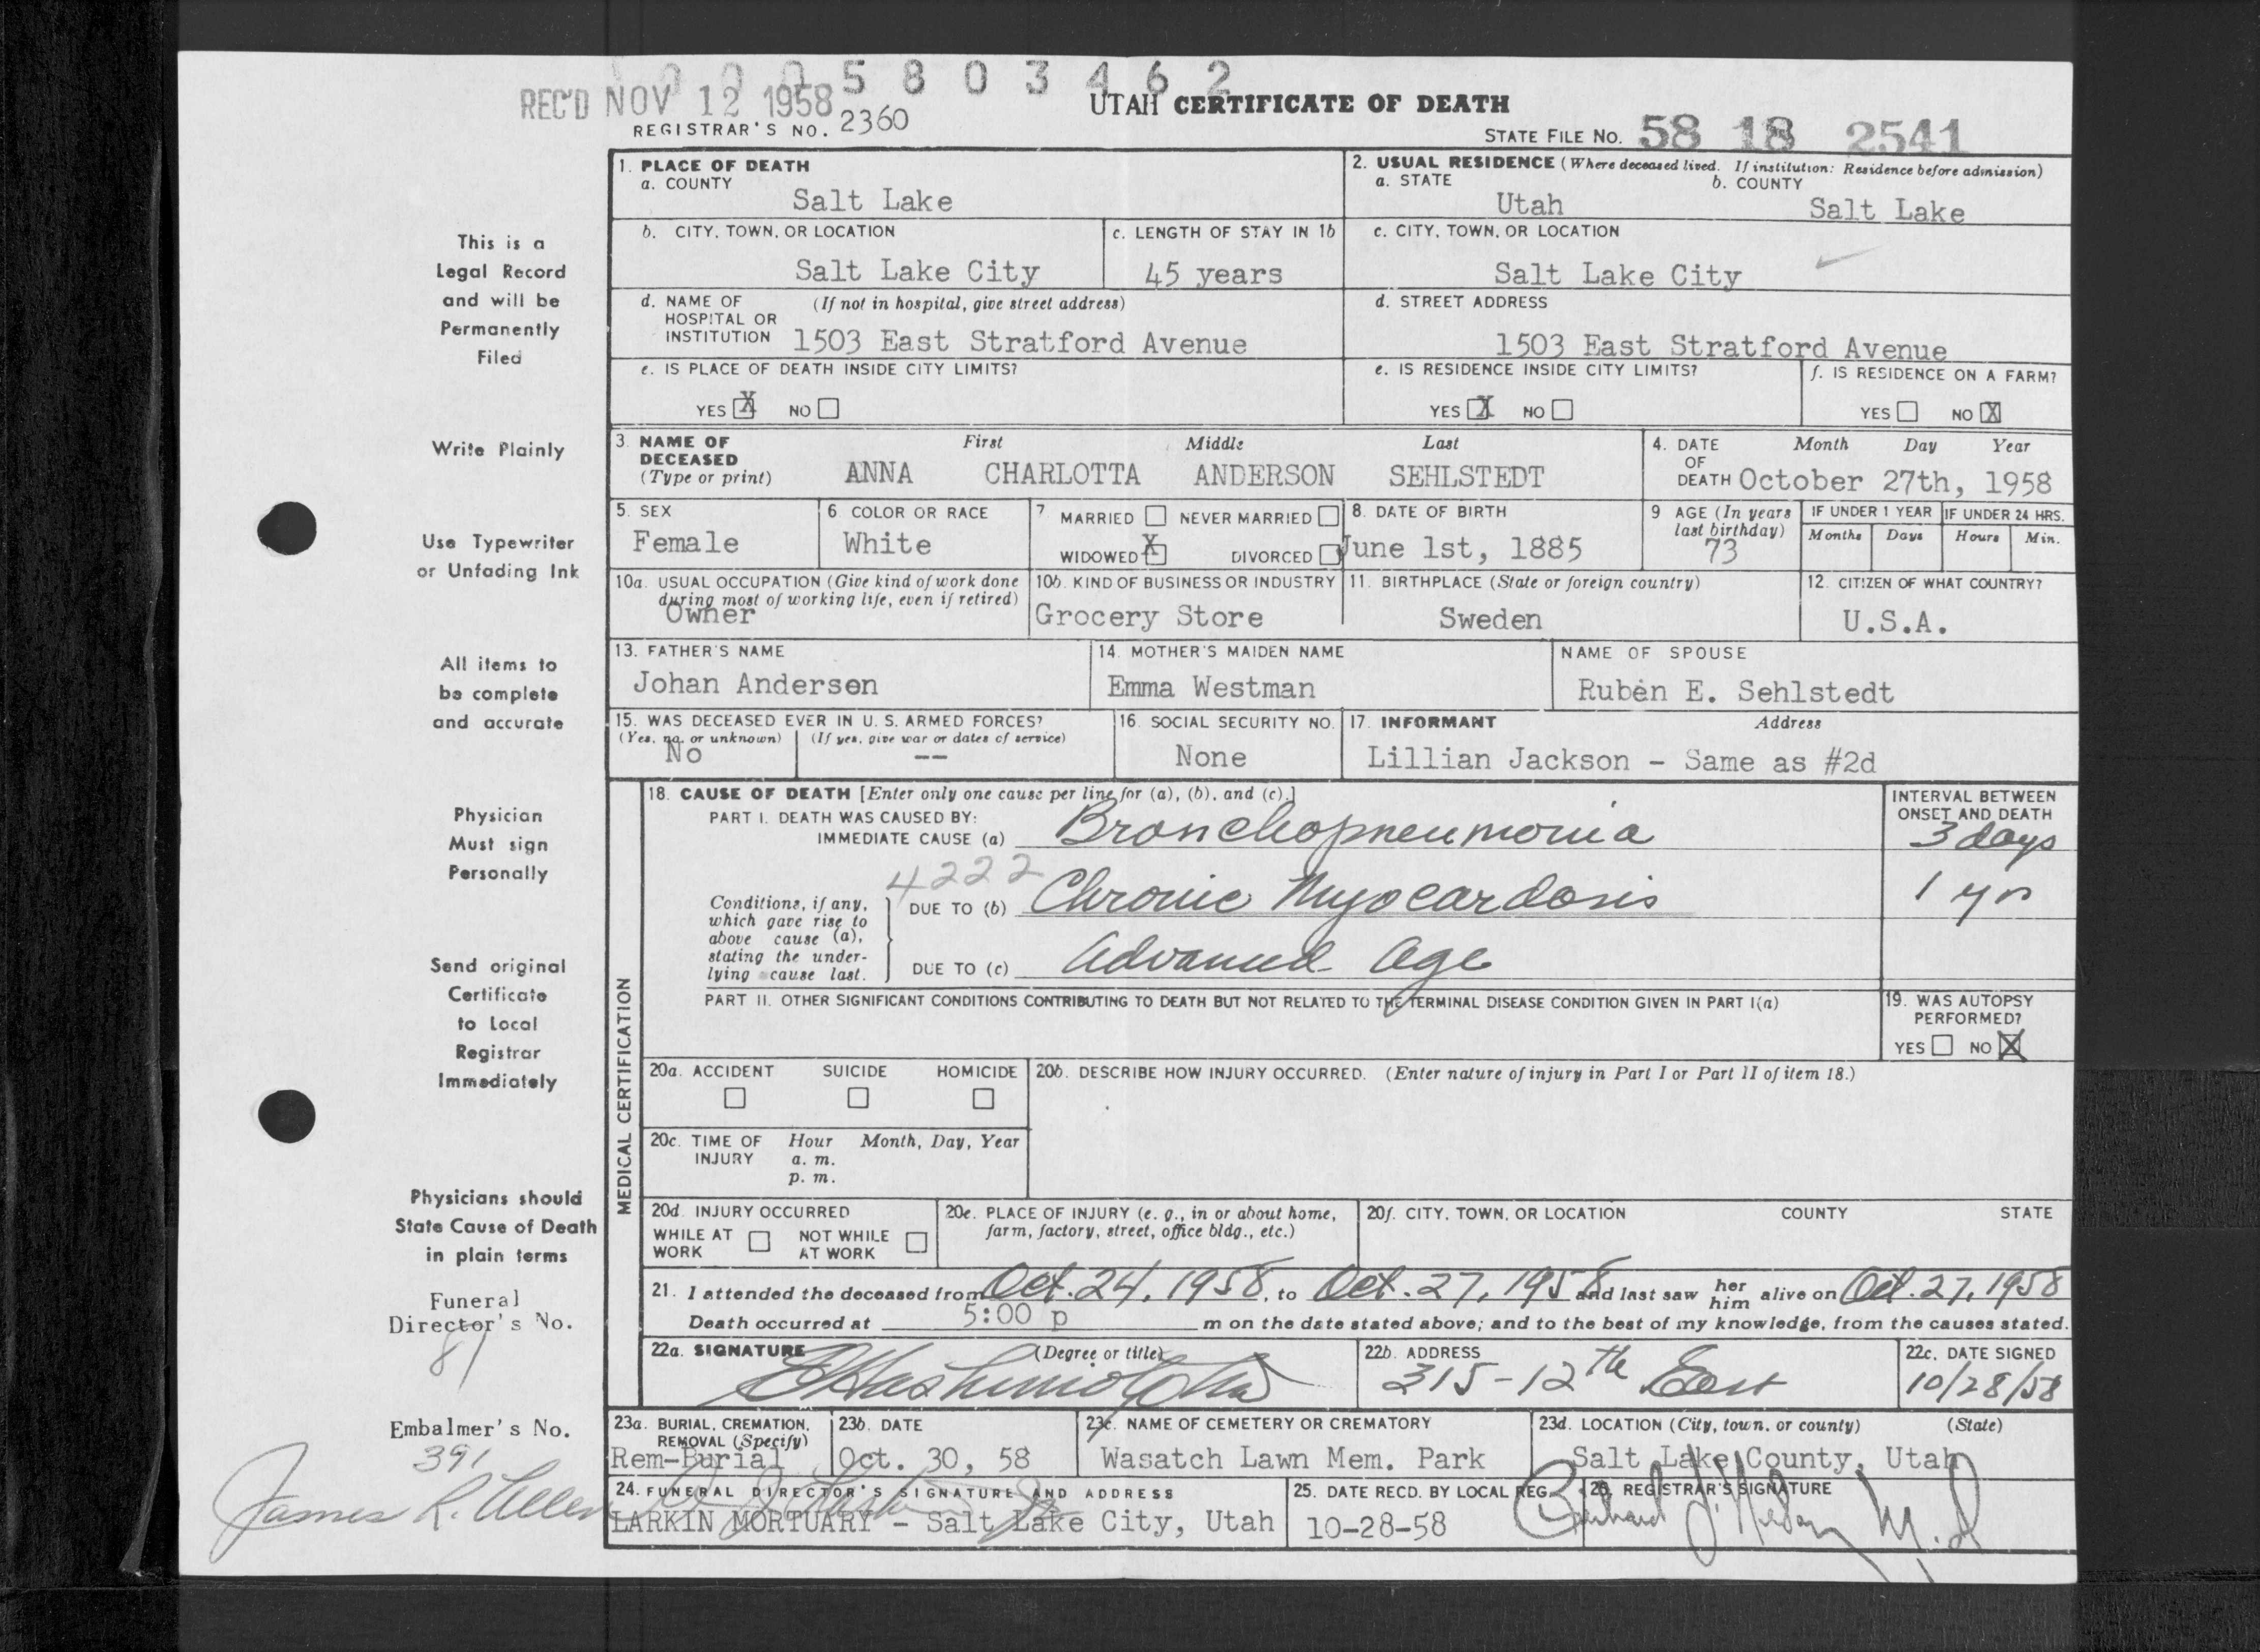 0 0 0 5 8 0 3 4 6 2
REC'D NOV 12 1958
UTAH CERTIFICATE OF DEATH
REGISTRAR'S NO. 2360
STATE FILE NO. 58 18 2541
This is a
Legal Record
and will be
Permanently
Filed
Write Plainly
Use Typewriter
or Unfading Ink
All items to
be complete
and accurate
Physician
Must sign
Personally
Send original
Certificate
to Local
Registrar
Immediately
Physicians should
State Cause of Death
in plain terms
Funeral
Director's No.
81
Embalmer's No.
391
James R. Allen
1. PLACE OF DEATH
a. COUNTY
Salt Lake
2. USUAL RESIDENCE (Where deceased lived. If institution: Residence before admission)
a. STATE b. COUNTY
Utah Salt Lake
b. CITY, TOWN, OR LOCATION
Salt Lake City
c. LENGTH OF STAY IN 1b
45 years
c. CITY, TOWN, OR LOCATION
Salt Lake City
d. NAME OF (If not in hospital, give street address)
HOSPITAL OR
INSTITUTION 1503 East Stratford Avenue
d. STREET ADDRESS
1503 East Stratford Avenue
e. IS PLACE OF DEATH INSIDE CITY LIMITS?
YES X NO
e. IS RESIDENCE INSIDE CITY LIMITS?
YES X NO
f. IS RESIDENCE ON A FARM?
YES NO X
3. NAME OF First Middle Last
DECEASED
(Type or print) ANNA CHARLOTTA ANDERSON SEHLSTEDT
4. DATE Month Day Year
OF
DEATH October 27th, 1958
5. SEX
Female
6. COLOR OR RACE
White
7 MARRIED NEVER MARRIED
WIDOWED X DIVORCED
8. DATE OF BIRTH
June 1st, 1885
9 AGE (In years
last birthday)
73
IF UNDER 1 YEAR IF UNDER 24 HRS.
Months Days Hours Min.
10a. USUAL OCCUPATION (Give kind of work done
during most of working life, even if retired)
Owner
10b. KIND OF BUSINESS OR INDUSTRY
Grocery Store
11. BIRTHPLACE (State or foreign country)
Sweden
12. CITIZEN OF WHAT COUNTRY?
U.S.A.
13. FATHER'S NAME
Johan Andersen
14. MOTHER'S MAIDEN NAME
Emma Westman
NAME OF SPOUSE
Ruben E. Sehlstedt
15. WAS DECEASED EVER IN U. S. ARMED FORCES?
(Yes, no, or unknown) (If yes, give war or dates of service)
No --
16. SOCIAL SECURITY NO.
None
17. INFORMANT Address
Lillian Jackson - Same as #2d
MEDICAL CERTIFICATION
18. CAUSE OF DEATH [Enter only one cause per line for (a), (b), and (c).]
INTERVAL BETWEEN
ONSET AND DEATH
PART I. DEATH WAS CAUSED BY:
IMMEDIATE CAUSE (a) Bronchopneumonia 3 days
4222
Conditions, if any,
which gave rise to
above cause (a),
stating the under-
lying cause last.
DUE TO (b) Chronic Myocardosis 1 yr
DUE TO (c) Advanced Age
PART II. OTHER SIGNIFICANT CONDITIONS CONTRIBUTING TO DEATH BUT NOT RELATED TO THE TERMINAL DISEASE CONDITION GIVEN IN PART I(a)
19. WAS AUTOPSY
PERFORMED?
YES NO X
20a. ACCIDENT SUICIDE HOMICIDE
20b. DESCRIBE HOW INJURY OCCURRED. (Enter nature of injury in Part I or Part II of item 18.)
20c. TIME OF Hour Month, Day, Year
INJURY a. m.
p. m.
20d. INJURY OCCURRED
WHILE AT NOT WHILE
WORK AT WORK
20e. PLACE OF INJURY (e. g., in or about home,
farm, factory, street, office bldg., etc.)
20f. CITY, TOWN, OR LOCATION COUNTY STATE
21. I attended the deceased from Oct. 24, 1958, to Oct. 27, 1958 and last saw her him alive on Oct. 27, 1958
Death occurred at 5:00 p m on the date stated above; and to the best of my knowledge, from the causes stated.
22a. SIGNATURE (Degree or title)
22b. ADDRESS
315-12th East
22c. DATE SIGNED
10/28/58
23a. BURIAL, CREMATION,
REMOVAL (Specify)
Rem-Burial
23b. DATE
Oct. 30, 58
23c. NAME OF CEMETERY OR CREMATORY
Wasatch Lawn Mem. Park
23d. LOCATION (City, town, or county) (State)
Salt Lake County, Utah
24. FUNERAL DIRECTOR'S SIGNATURE AND ADDRESS
LARKIN MORTUARY - Salt Lake City, Utah
25. DATE RECD. BY LOCAL REG.
10-28-58
26. REGISTRAR'S SIGNATURE